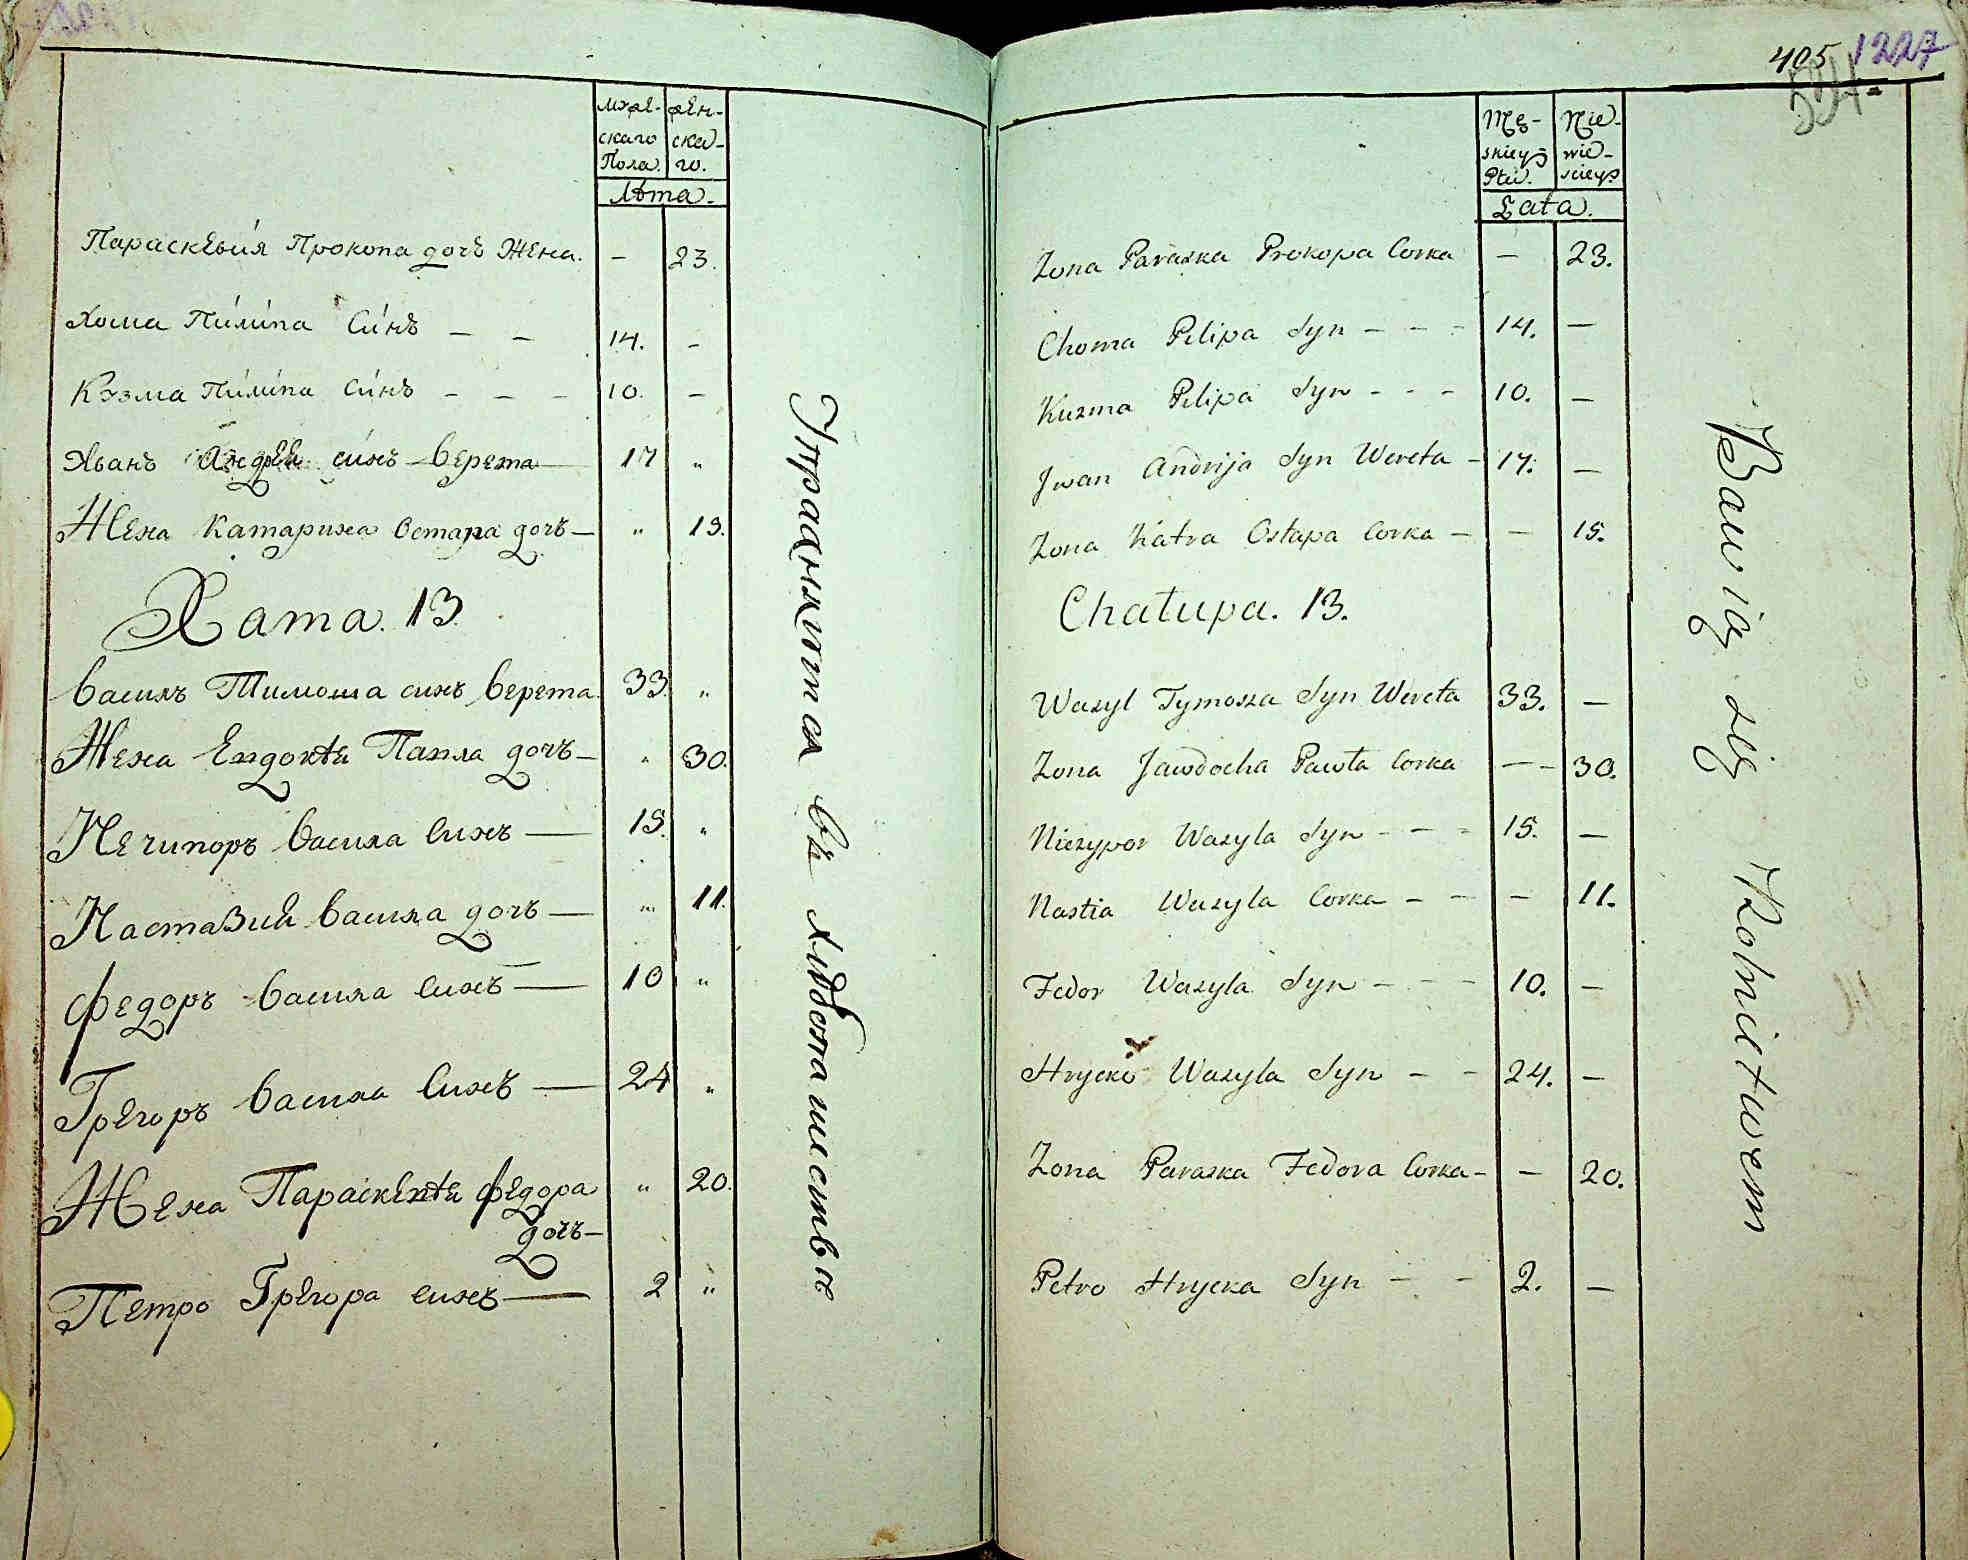 мꙋже-
скаго
Пола.
жен-
ска-
го.
Лѣта.
Параскевія Прокопа дочъ Жена. – 23.
Хома Пиліпа Синъ – – 14. –
Кꙋзма Пиліпа Синъ – – – 10. –
Иванъ Андрей синъ Верета 17 „
Жена Катарина Остапа дочъ – „ 15.
Хата. 13.
Василъ Тимоша синъ Верета 33. „
Жена Евдокѣя Павла дочъ – „ 30.
Нечипоръ Василя Синъ — 15. „
Настазия Василя дочъ — „ 11.
Федоръ Василя Синъ — 10 „
Грегоръ Василя Синъ — 24 „
Жена Параскевѣя Федора „ 20.
дочъ –
Петро Грегора синъ — 2 „
Упражняются въ хлѣбопашествѣ
405 1227
Mę-
skiey
Płci.
Nie-
wie-
sciey
Łata.
Zona Paraska Prokopa Corka – 23.
Choma Pilipa Syn – – – 14. –
Kuzma Pilipa Syn – – – 10. –
Jwan Andrija Syn Wereta – 17. –
Zona Katra Ostapa Corka – – 15.
Chałupa. 13.
Wasyl Tymosza Syn Wereta 33. –
Zona Jawdocha Pawła Corka – – 30.
Niczypor Wasyla Syn – – – 15. –
Nastia Wasyla Corka – – – 11.
Fedor Wasyla Syn – – – 10. –
Hrycko Wasyla Syn – – 24. –
Zona Paraska Fedora Corka – – 20.
Petro Hrycka Syn – – 2. –
Bawią się Rolnictwem